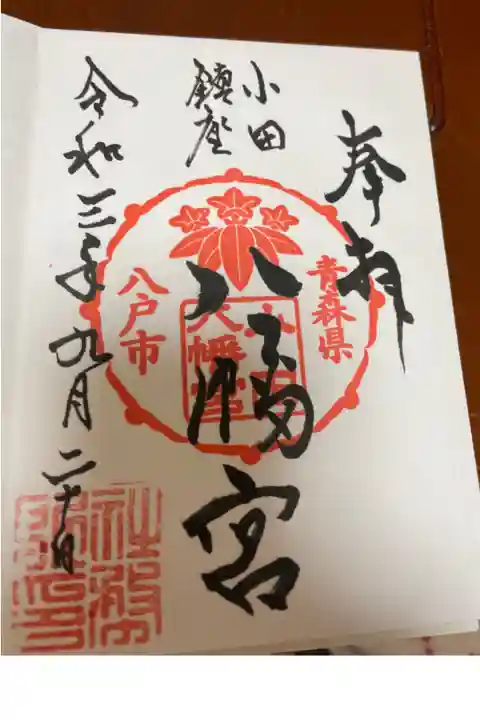 奉拝
青森県
小田
鎮座
八幡宮
小田
八幡宮
八戸市
令和三年九月二十日